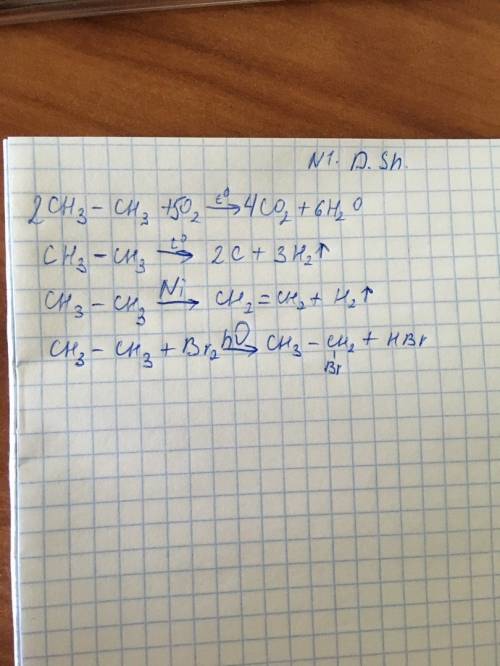 N1. D. Sh.
2CH₃ – CH₃ + 5O₂ –t⁰→ 4CO₂ + 6H₂O
CH₃ – CH₃ –t⁰→ 2C + 3H₂↑
CH₃ – CH₃ –Ni→ CH₂ = CH₂ + H₂↑
CH₃ – CH₃ + Br₂ –hν→ CH₃ – CH₂ + HBr
Br